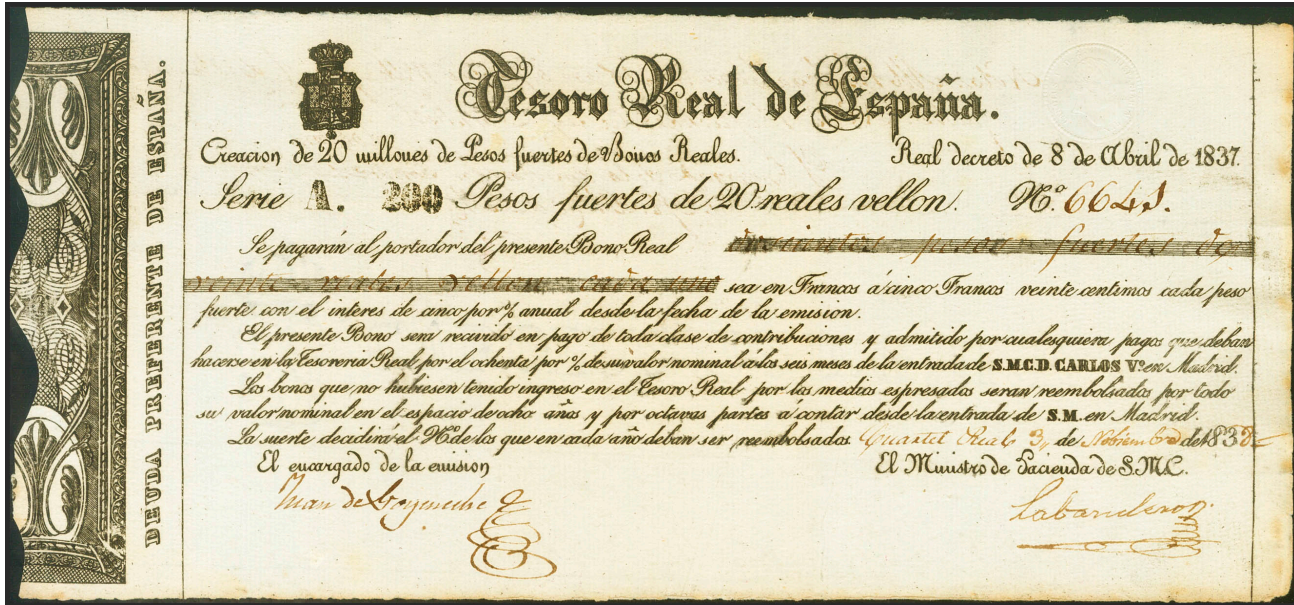 DEUDA PREFERENTE DE ESPAÑA.
Tesoro Real de España.
Creacion de 20 millones de Pesos fuertes de Bonos Reales. Real decreto de 8 de Abril de 1837.
Serie A. 200 Pesos fuertes de 20 reales vellon. Nº. 6641.
Se pagarán al portador del presente Bono Real doscientos pesos fuertes de
veinte reales vellon cada uno sea en Francos á cinco Francos veinte centimos cada peso
fuerte con el interes de cinco por % anual desde la fecha de la emision.
El presente Bono sera recivido en pago de toda clase de contribuciones y admitido por cualesquiera pagos que deban
hacerse en la Tesoreria Real por el ochenta por % de su valor nominal á los seis meses de la entrada de S.M.C.D. CARLOS Vº. en Madrid.
Los bonos que no hubiesen tenido ingreso en el Tesoro Real por los medios espresados seran reembolsados por todo
su valor nominal en el espacio de ocho años y por octavas partes a contar desde la entrada de S.M. en Madrid.
La suerte decidirá el Nº de los que en cada año deban ser reembolsados. Cuartel Real 3, de Nobiembre de 1838
El encargado de la emision El Ministro de Hacienda de S.M.C.
Juan de Goyeneche Labandero